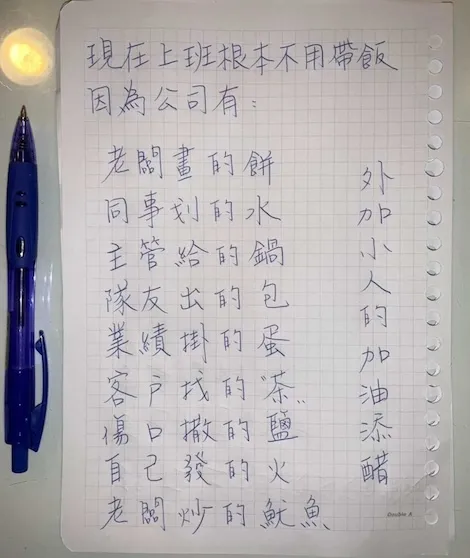 現在上班根本不用帶飯
因為公司有:
老闆畫的餅
同事划的水
主管給的鍋
隊友出的包
業績掛的蛋
客戶找的"茶"
傷口撒的鹽
自己發的火
老闆炒的魷魚
外加小人的加油添醋
Double A